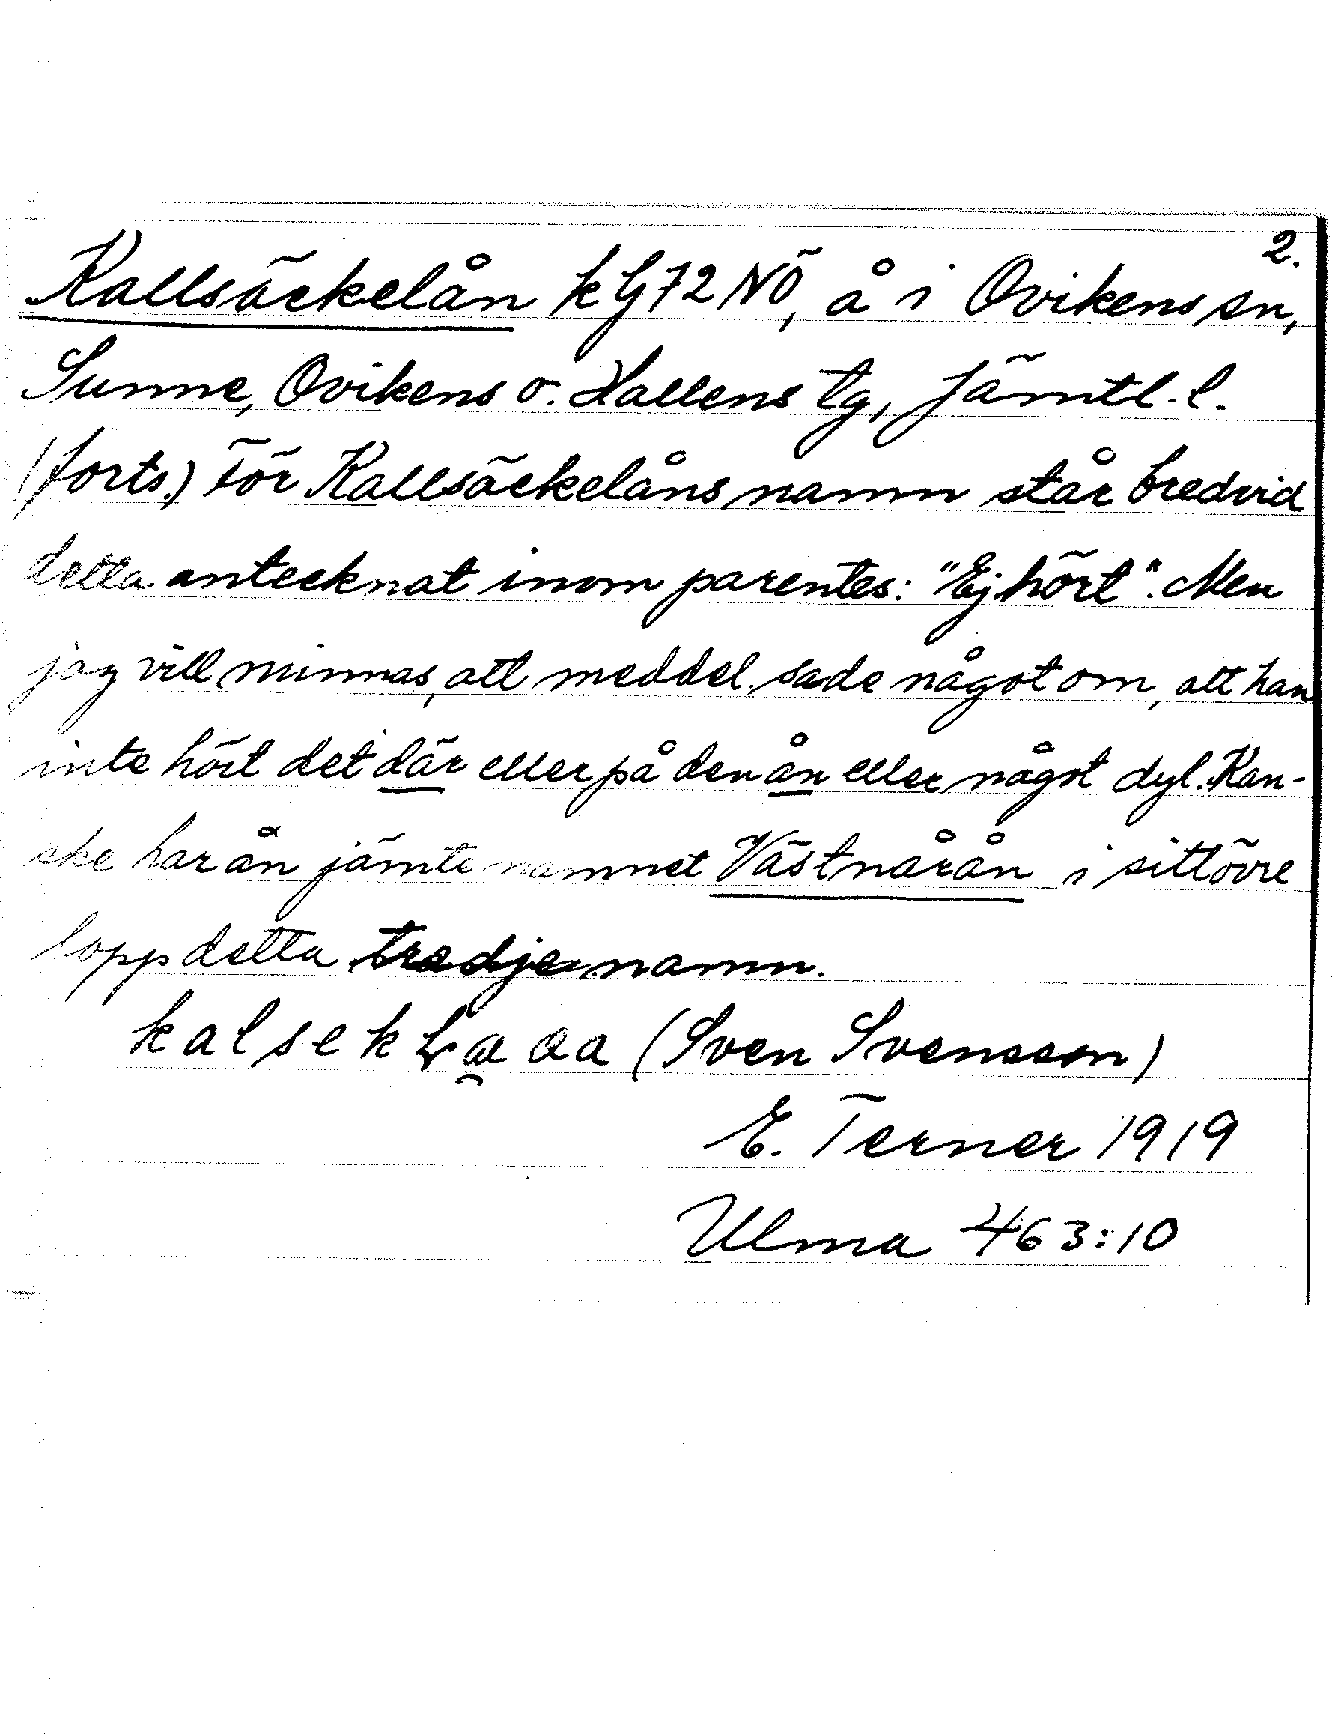 2.
Kallsäckelån k G72 NÖ, å i Ovikens sn,
Sunne, Ovikens o. Hallens tg, Jämtl. l.
(forts.) För Kallsäckelåns namn står bredvid
detta antecknat inom parentes: "Ej hört". Men
jag vill minnas, att meddel. sade något om, att han
inte hört det där eller på den ån eller något dyl. Kan-
ske har ån jämte namnet Västnårån i sitt övre
lopp detta tredje namn.
(Sven Svensson)
E. Terner 1919
Ulma 463:10